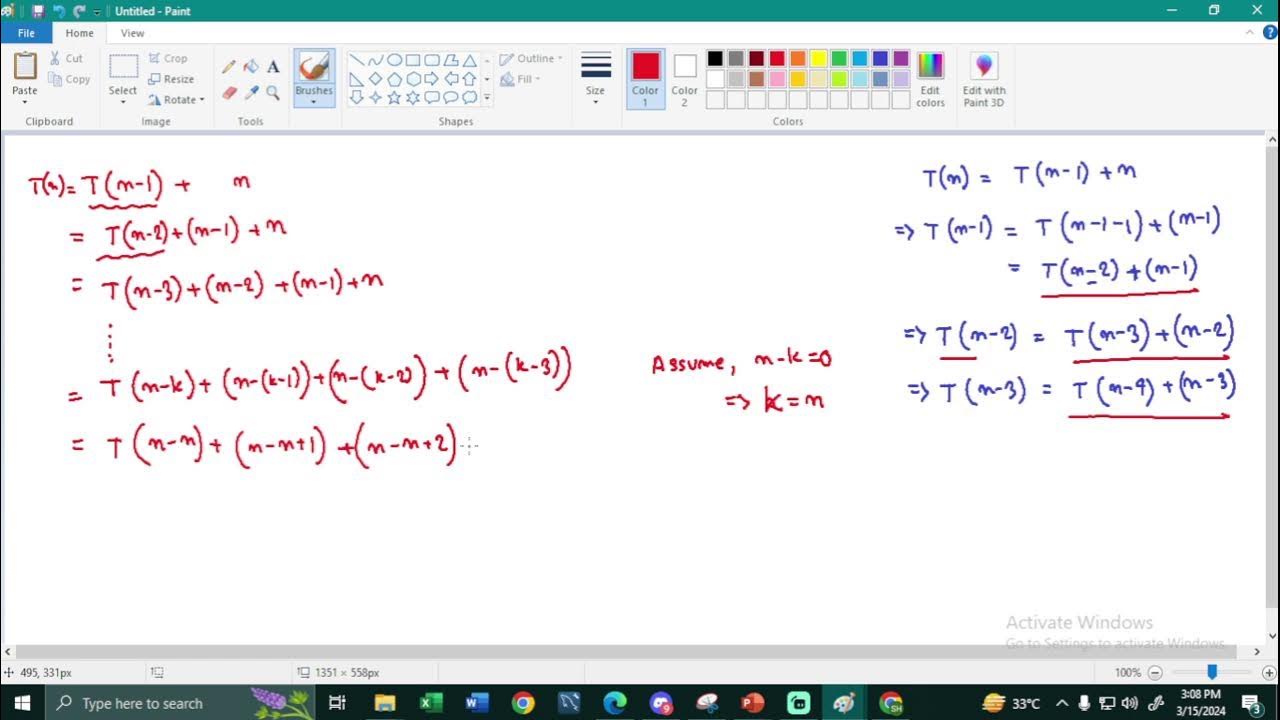 Untitled - Paint
File Home View
Paste Cut Copy Select Crop Resize Rotate Brushes Outline Fill Size Color 1 Color 2 Edit colors Edit with Paint 3D
Clipboard Image Tools Shapes Colors
T(n) = T(n-1) + n
= T(n-2) + (n-1) + n
= T(n-3) + (n-2) + (n-1) + n
= T(n-k) + (n-(k-1)) + (n-(k-2)) + (n-(k-3))
= T(n-n) + (n-n+1) + (n-n+2)
Assume, n-k=0
=> k = n
T(n) = T(n-1) + n
=> T(n-1) = T(n-1-1) + (n-1)
= T(n-2) + (n-1)
=> T(n-2) = T(n-3) + (n-2)
=> T(n-3) = T(n-4) + (n-3)
Activate Windows
Go to Settings to activate Windows.
495, 331px 1351 × 558px 100%
Type here to search 33°C 3:08 PM
3/15/2024